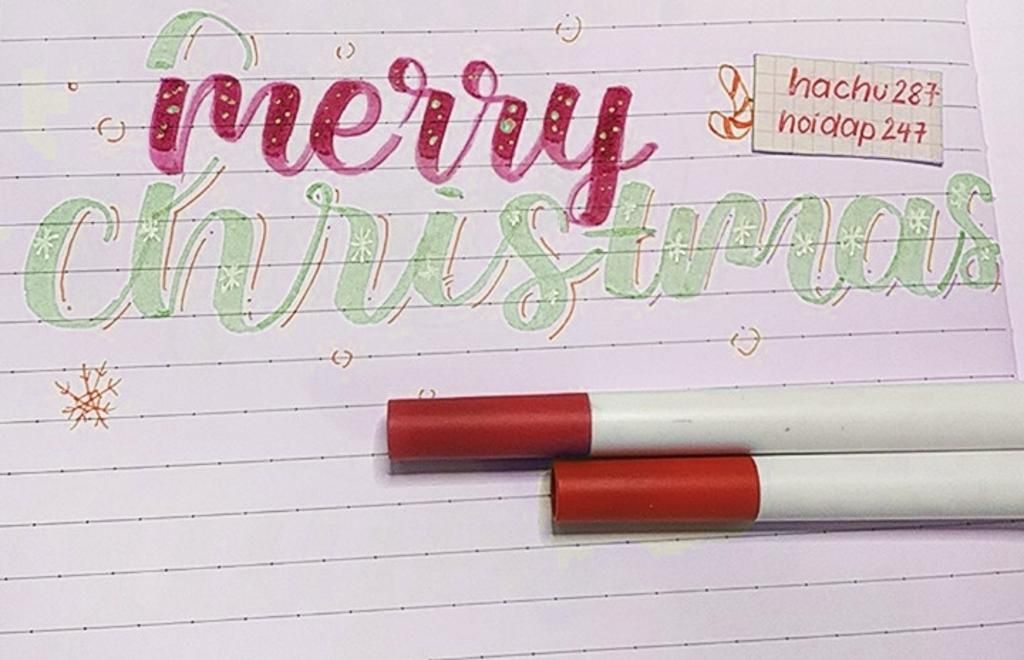 merry
christmas
hachu287
hoidap247